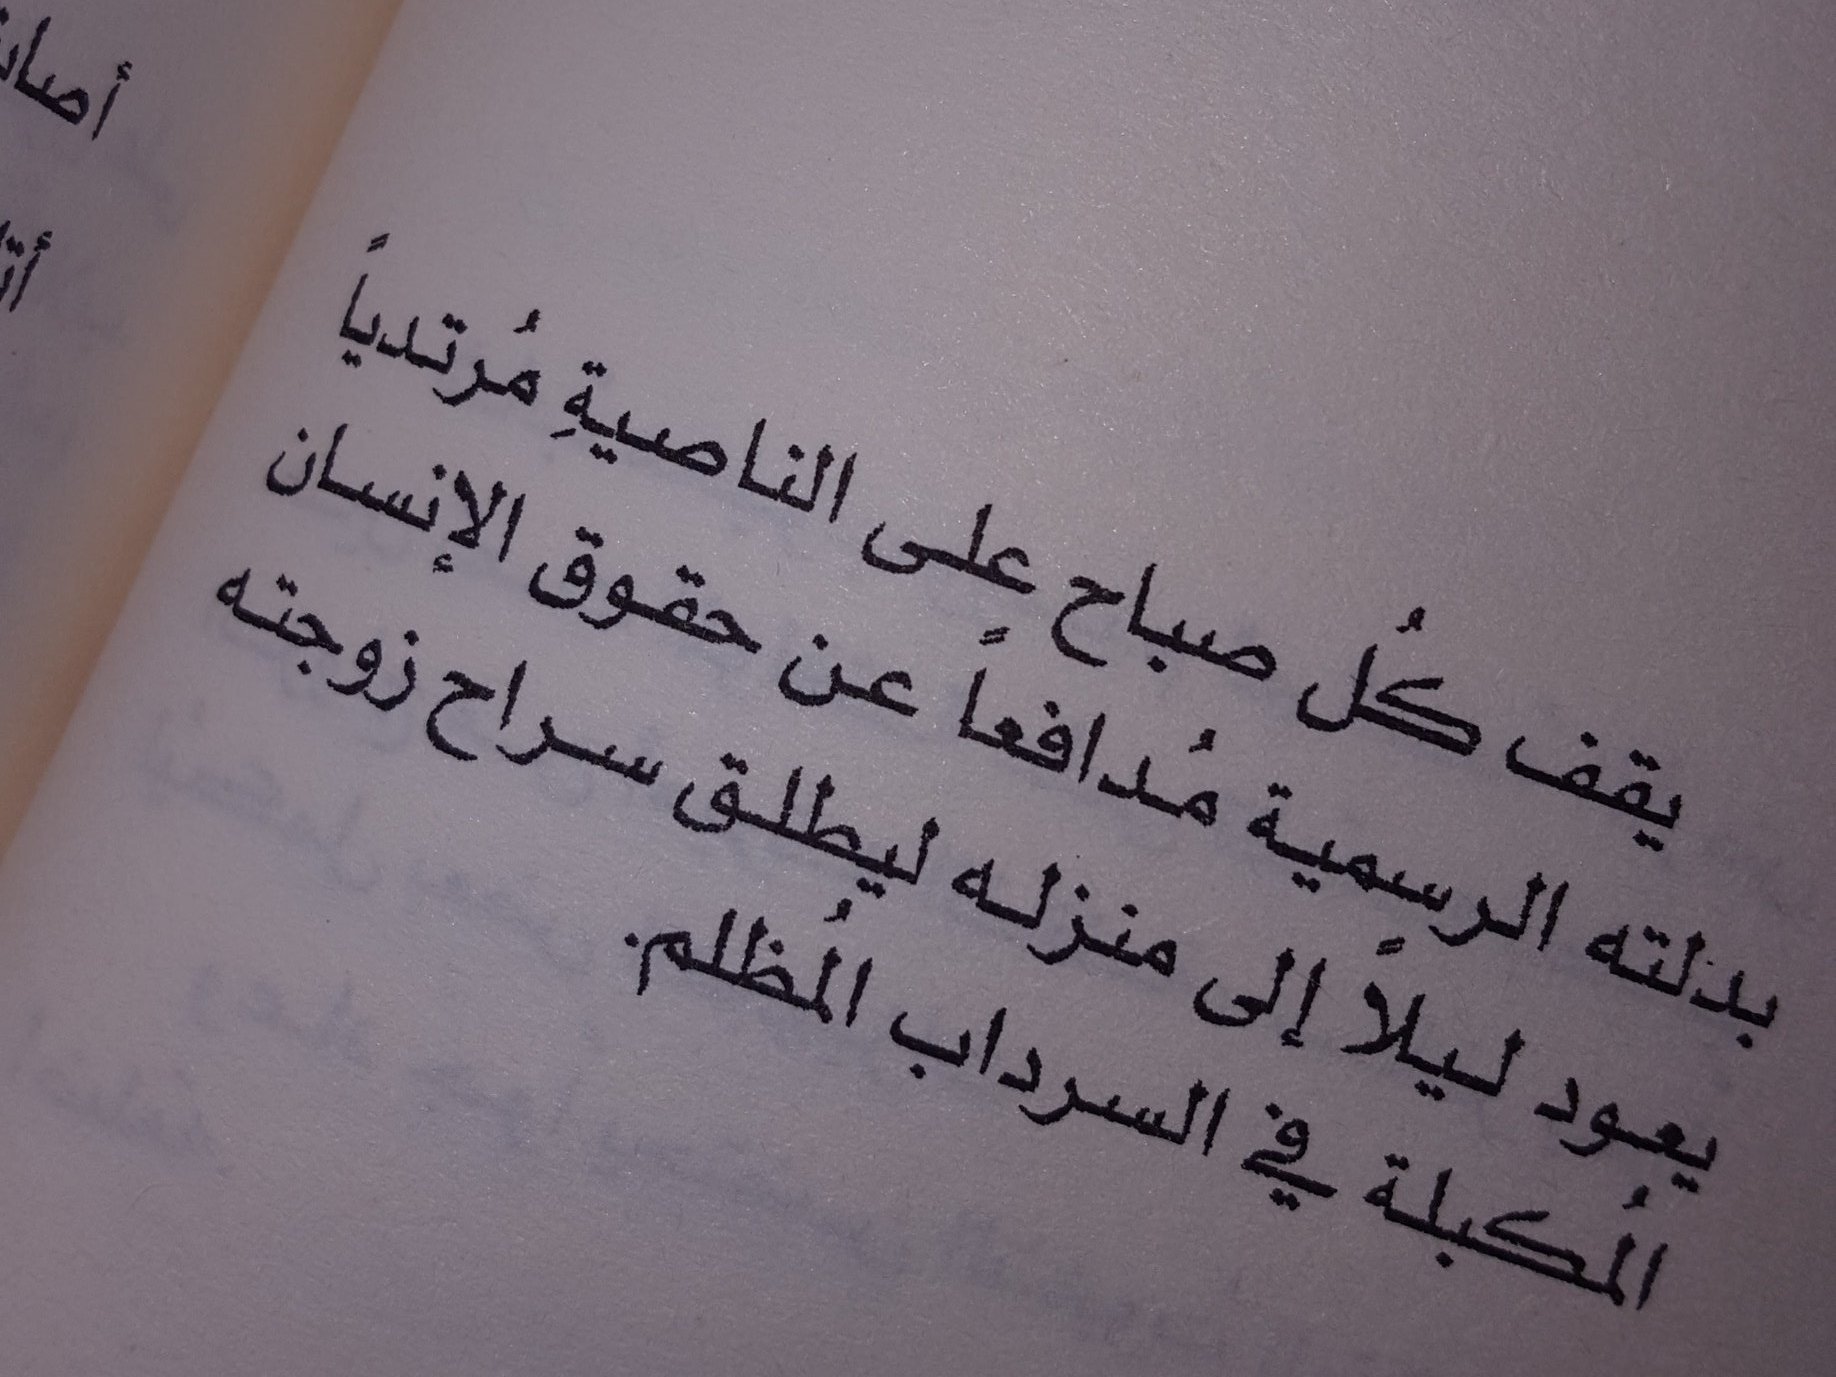 يقف كُل صباح على الناصيةِ مُرتدياً
بدلته الرسمية مُدافعاً عن حقوق الإنسان
يعود ليلاً إلى منزله ليطلق سراح زوجته
المُكبلة في السرداب المُظلم.